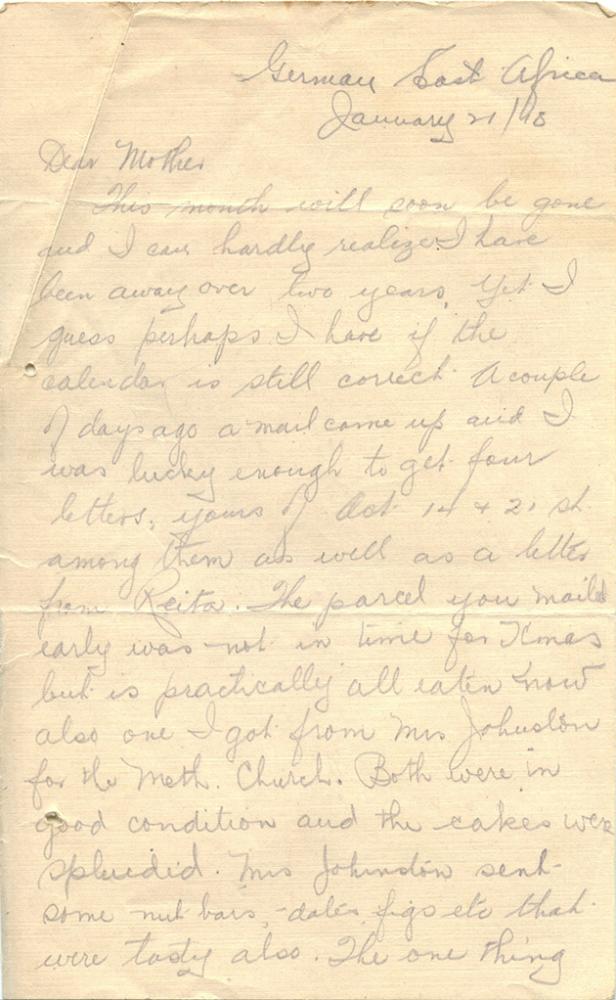 German East Africa
January 21/18
Dear Mother
This month will soon be gone
and I can hardly realize I have
been away over two years. Yet I
guess perhaps I have if the
calendar is still correct. A couple
of days ago a mail came up and I
was lucky enough to get four
letters, yours of Oct. 14 & 21 st.
among them as well as a letter
from Reita. The parcel you mailed
early was not in time for Xmas
but is practically all eaten now
also one I got from Mrs Johnston
for the Meth. Church. Both were in
good condition and the cakes were
splendid. Mrs Johnston sent
some nut bars, dates figs etc that
were tasty also. The one thing